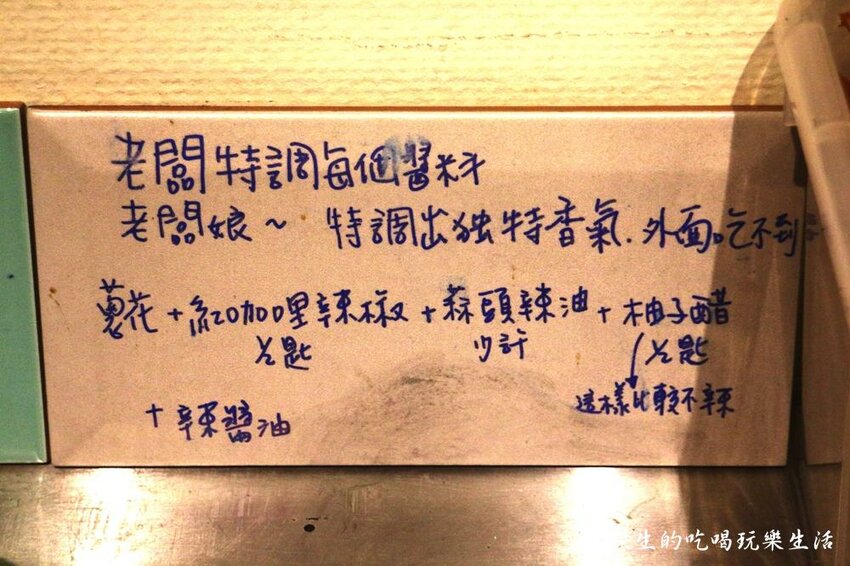 老闆特調每個醬料
老闆娘~ 特調出独特香氣.外面吃不到
蔥花+紅咖哩辣椒+蒜頭辣油+柚子醋
½匙 少許 ½匙
這樣比較不辣
+辣醬油
生的吃喝玩樂生活